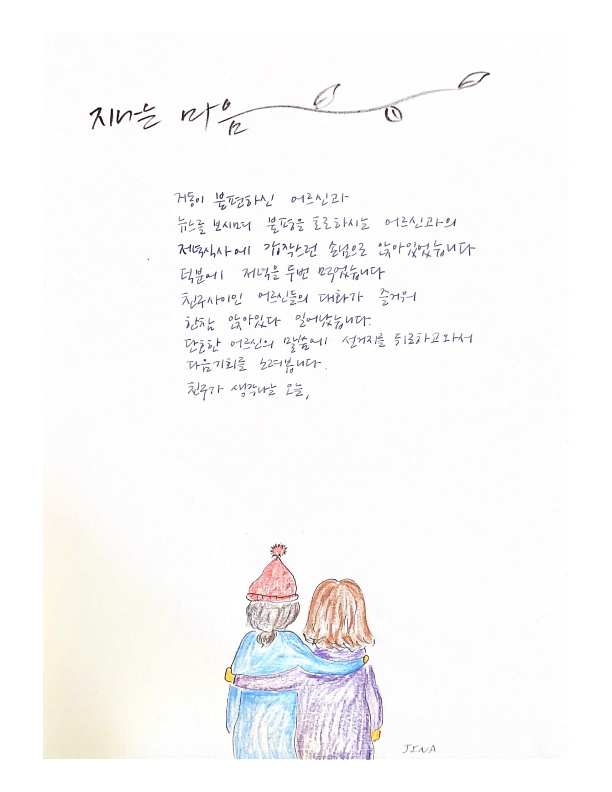 지나는 마음
거동이 불편하신 어르신과
뉴스를 보시며 불평을 토로하시는 어르신과의
저녁식사에 갑작스런 손님으로 앉아있었습니다
덕분에 저녁을 두번 먹었습니다
친구사이인 어르신들의 대화가 즐거워
한참 앉아있다 일어났습니다.
단호한 어르신의 말씀에 설거지를 뒤로하고 와서
다음기회를 노려봅니다.
친구가 생각나는 오늘,
JINA